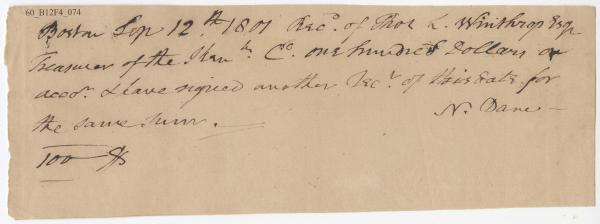 60_B12F4_074
Boston Sep 12.th 1801 Rec.d of Tho.s L. Winthrop Esq.
Treasurer of the Co. one hundred Dollars on
acco.t & have signed another Rec.t of this date for
the same sum. —
N. Dane —
100 $